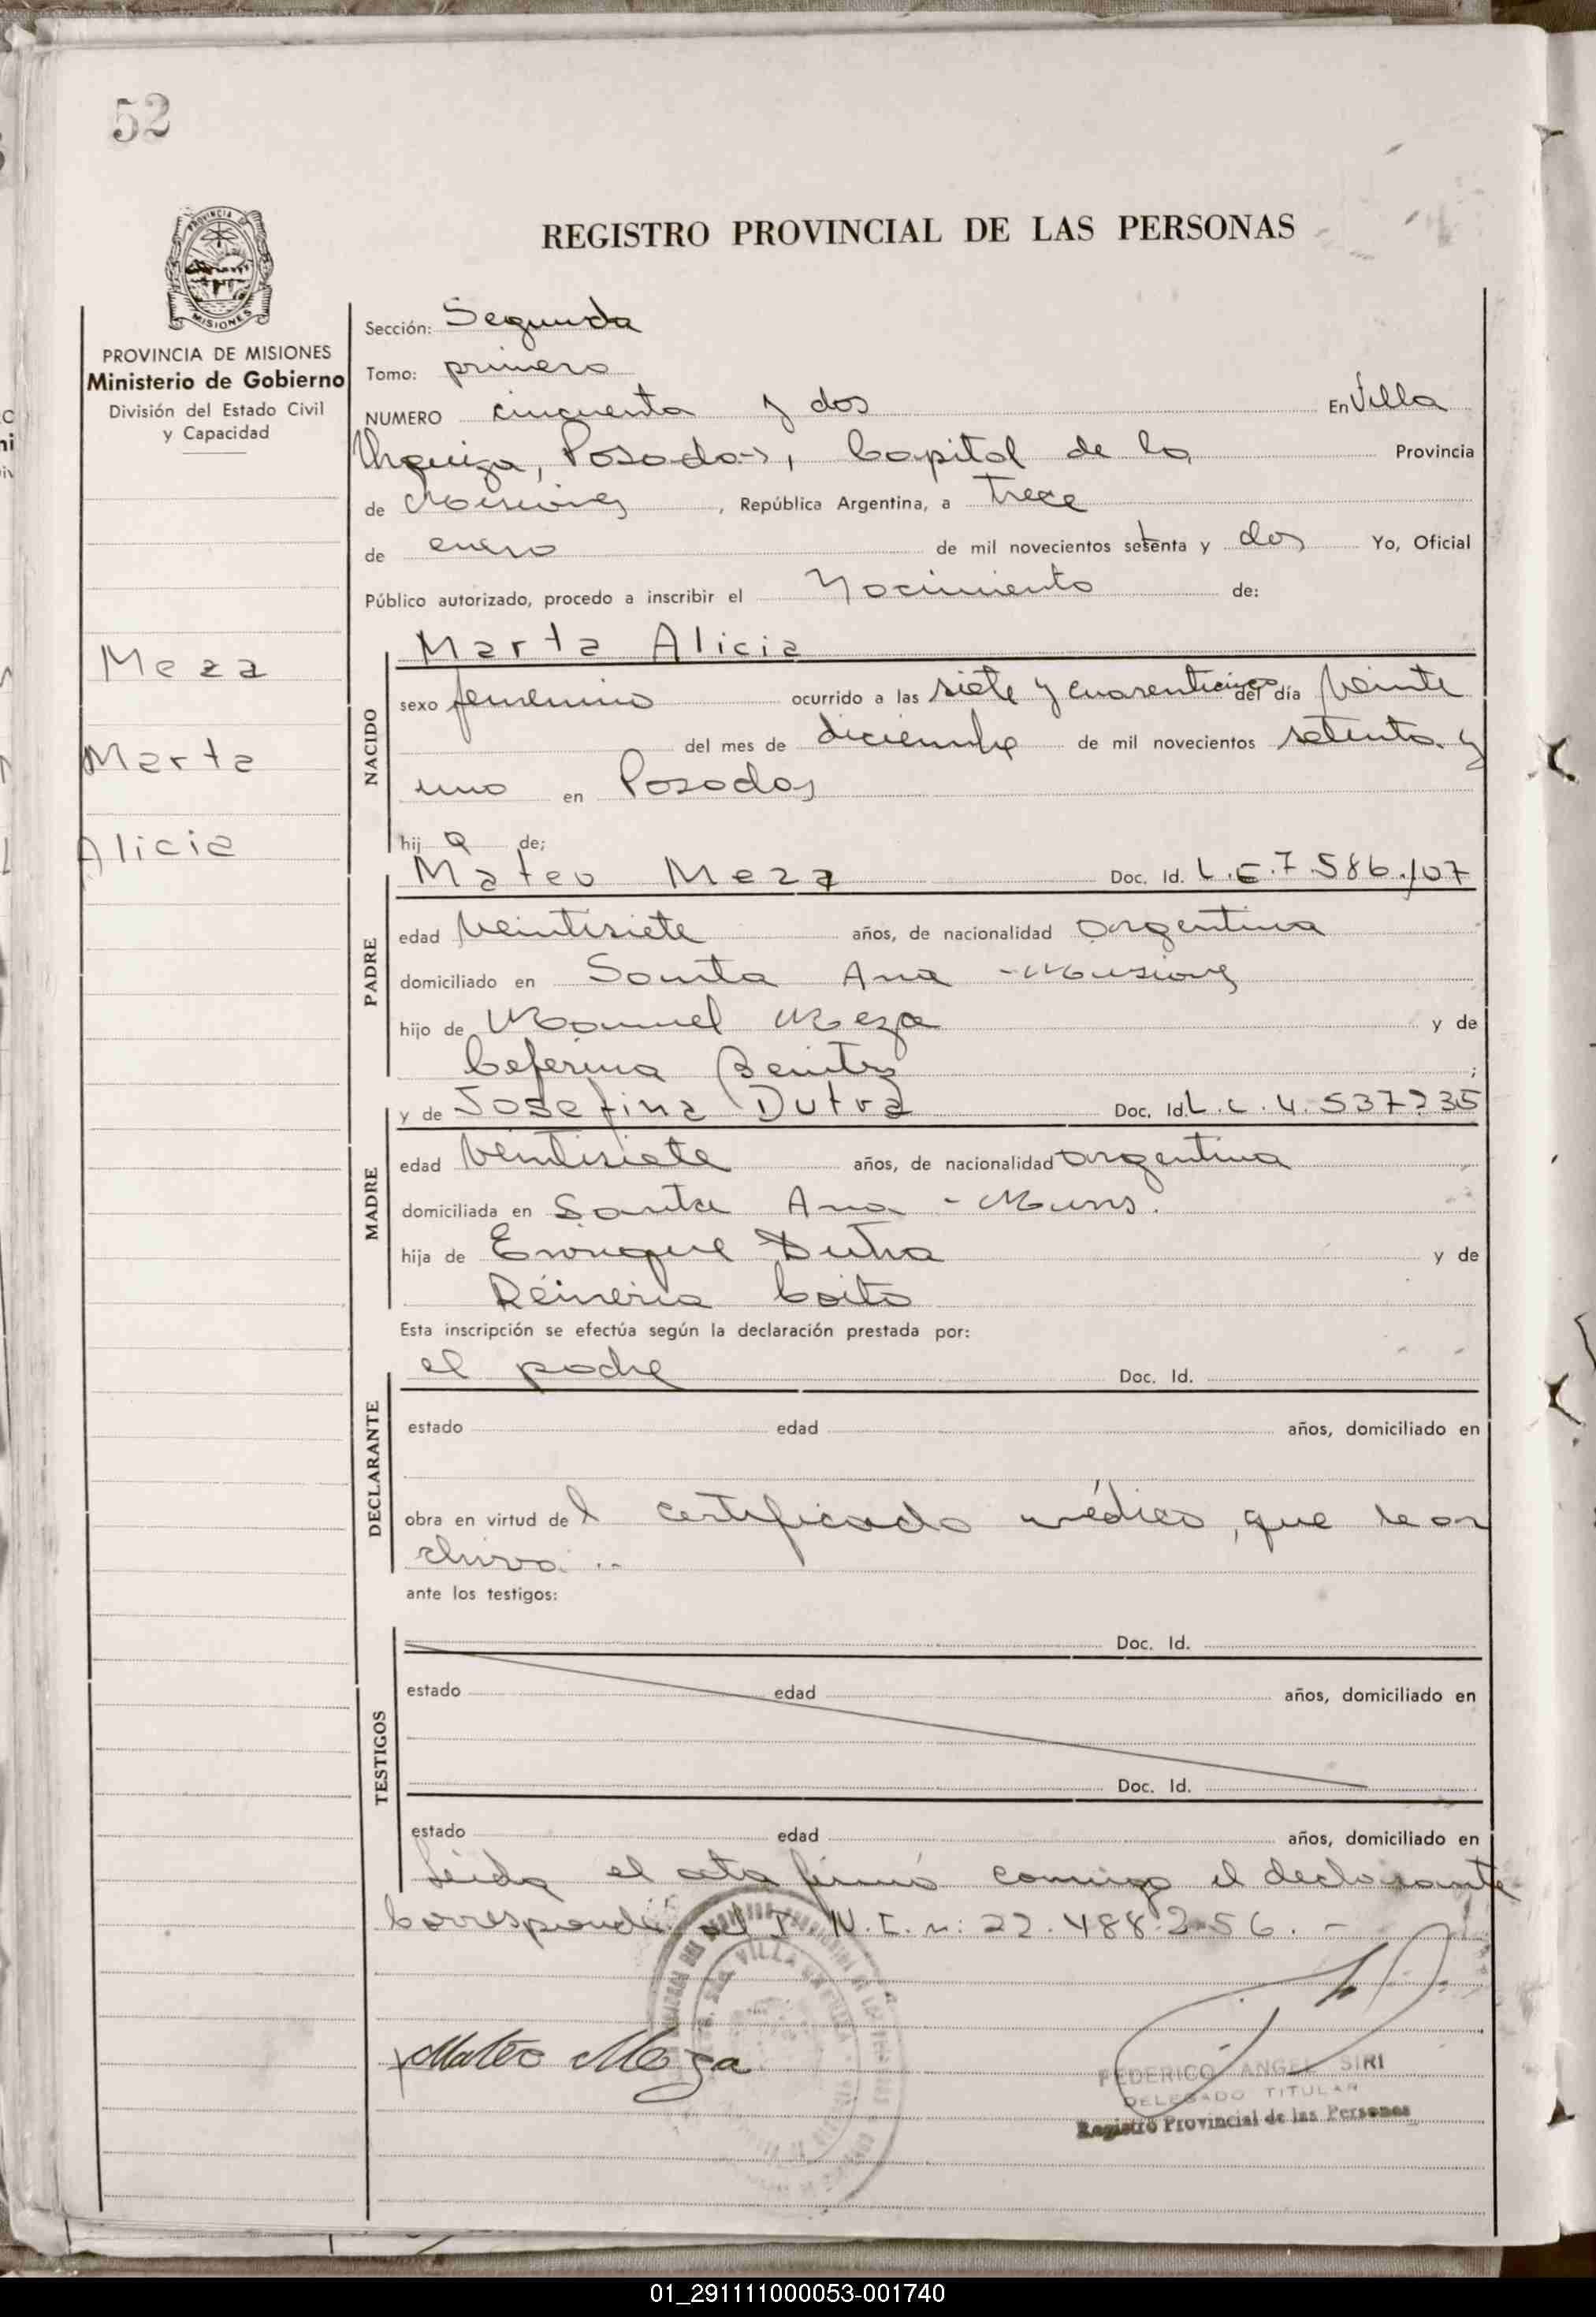 52
REGISTRO PROVINCIAL DE LAS PERSONAS
PROVINCIA DE MISIONES
Ministerio de Gobierno
División del Estado Civil
y Capacidad
Meza
Marta
Alicia
Sección: Segunda
Tomo: primero
NUMERO cincuenta y dos En Villa
Urquiza, Posadas, Capital de la Provincia
de Misiones, República Argentina, a trece
de enero de mil novecientos setenta y dos Yo, Oficial
Público autorizado, procedo a inscribir el Nacimiento de:
NACIDO
Marta Alicia
sexo femenino ocurrido a las siete y cuarenticinco del día veinte
del mes de diciembre de mil novecientos setenta y
uno en Posadas
hija de;
PADRE
Mateo Meza Doc. Id. L.E.7.586.107
edad veintisiete años, de nacionalidad argentina
domiciliado en Santa Ana - Misiones
hijo de Manuel Meza y de
Ceferina Benitez ;
MADRE
y de Josefina Dutra Doc. Id. L.C.4.537235
edad veintisiete años, de nacionalidad argentina
domiciliada en Santa Ana - Misns.
hija de Enrique Dutra y de
Reineria Coito
Esta inscripción se efectúa según la declaración prestada por:
DECLARANTE
el padre Doc. Id.
estado edad años, domiciliado en
obra en virtud del certificado médico, que se ar
chiva..
ante los testigos:
TESTIGOS
Doc. Id.
estado edad años, domiciliado en
Doc. Id.
estado edad años, domiciliado en
Leida el acta firmó conmigo el declarante
Corresponde al D.N.I. n: 22.488.256.-
Mateo Meza
FEDERICO ANGEL SIRI
DELEGADO TITULAR
Registro Provincial de las Personas
01_291111000053-001740